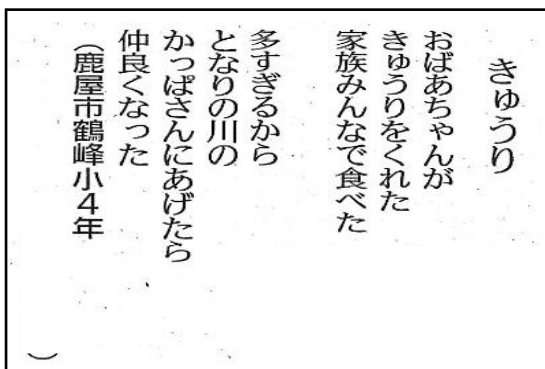 きゅうり
おばあちゃんが
きゅうりをくれた
家族みんなで食べた
多すぎるから
となりの川の
かっぱさんにあげたら
仲良くなった
（鹿屋市鶴峰小４年　　　　）